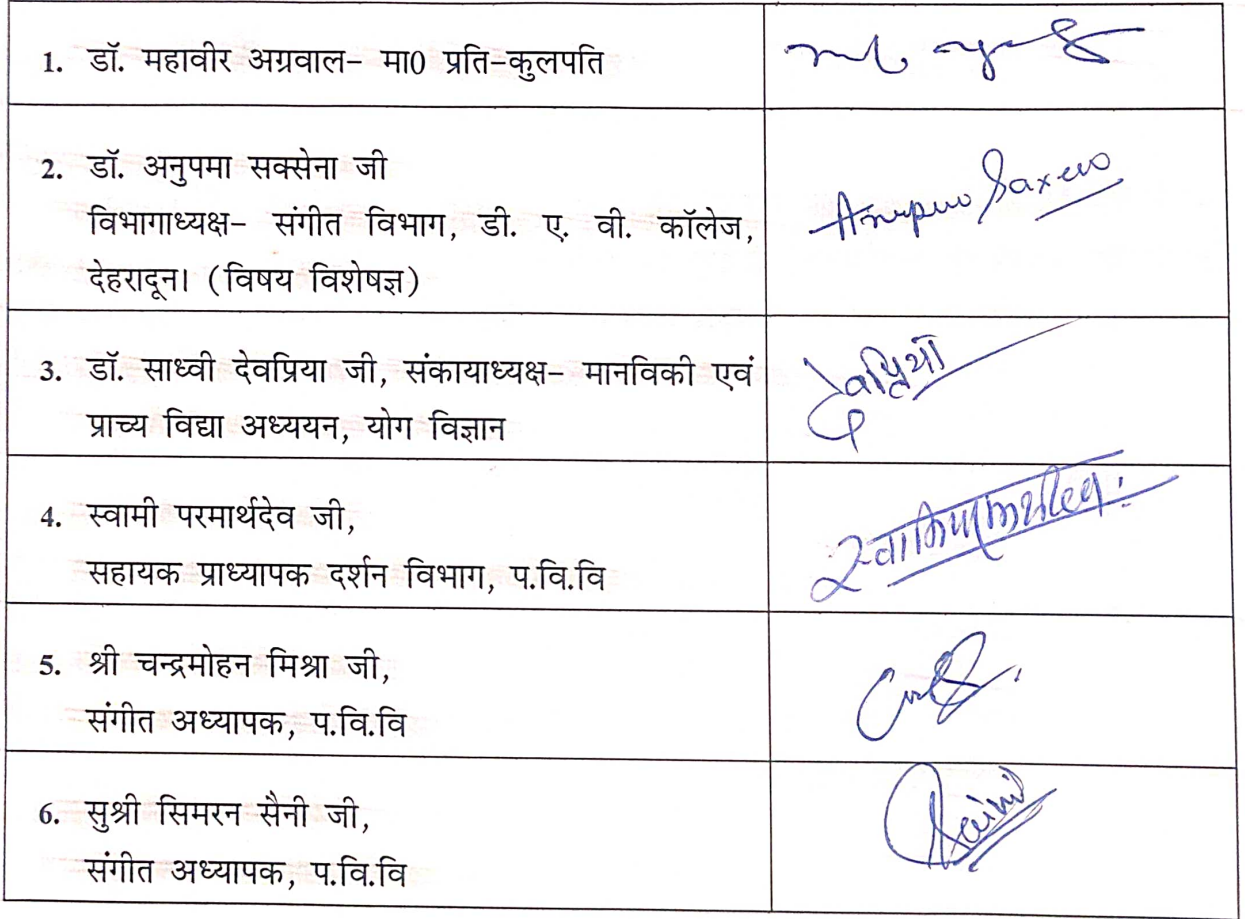 1. डॉ. महावीर अग्रवाल- मा0 प्रति-कुलपति
2. डॉ. अनुपमा सक्सेना जी
विभागाध्यक्ष- संगीत विभाग, डी. ए. वी. कॉलेज,
देहरादून। (विषय विशेषज्ञ)
Saxena
3. डॉ. साध्वी देवप्रिया जी, संकायाध्यक्ष- मानविकी एवं
प्राच्य विद्या अध्ययन, योग विज्ञान
देवप्रिया
4. स्वामी परमार्थदेव जी,
सहायक प्राध्यापक दर्शन विभाग, प.वि.वि
5. श्री चन्द्रमोहन मिश्रा जी,
संगीत अध्यापक, प.वि.वि
6. सुश्री सिमरन सैनी जी,
संगीत अध्यापक, प.वि.वि
Saini